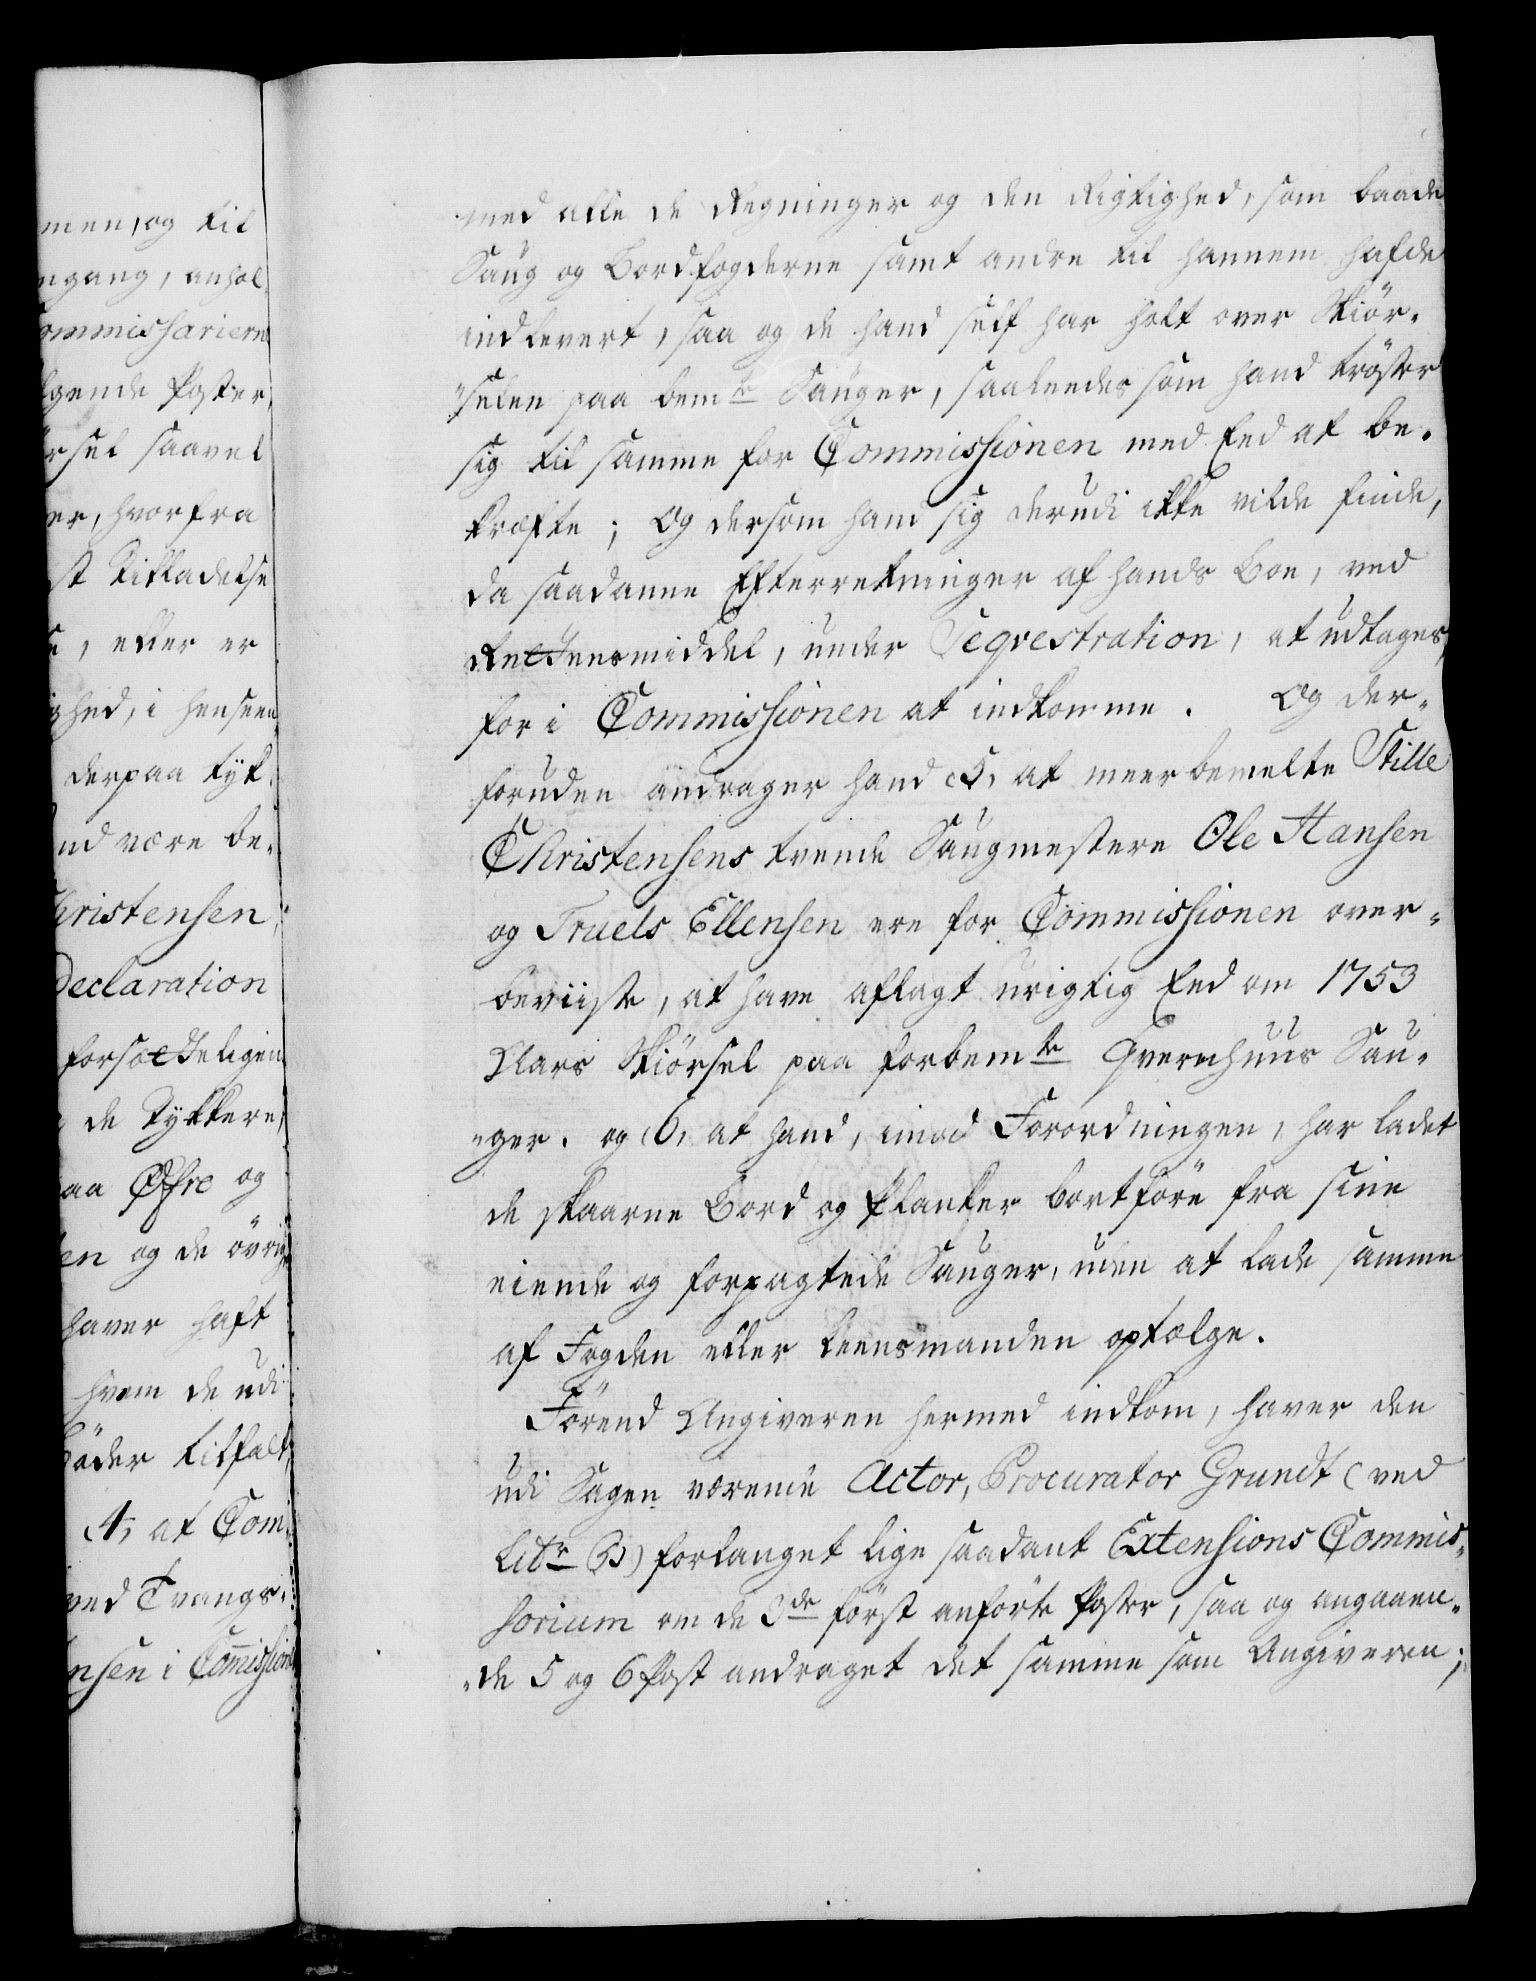 men, og til
ngang, anhol
ommissarierne
lgende Poster,
rsel saavel
er, hvorfra
st Tilladelse
e, eller er
ghed, i henseen
derpaa tyk
nd være be„
hristensen,
Declaration
forsætteligen
de Tykkere,
aa Øfre og
en og de øvrige
haver haft
hvem de udi
bøder tilfalt,
4, at Com
ved Tvangs„
nsen i Commission
med alle de Regninger og den Rigtighed, som baade
Saug og Bordfogderne samt andre til hannem hafde
indlevert, saa og de hand self har holt over Skiør„
„selen paa bemte Sauger, saaledes som hand trøster
sig til samme for Commissionen med Eed at be„
kræfte; Og dersom hand sig derudi ikke vilde finde,
da saadanne Efterretninger af hands Boe, ved
Rettensmiddel, under Seqvestration, at udtages,
for i Commissionen at indkomme. Og der„
foruden andrager hand 5, at meerbemelte Stille
Christensens tvende Saugmestere Ole Hansen
og Truels Ellensen ere for Commissionen over„
beviiste, at have aflagt urigtig Eed om 1753
Aars Skiørsel paa forbemte Qvernhuus Sau„
„ger. og 6, at hand, imod Forordningen, har ladet
de skaarne Bord og Planker bortføre fra sine
eiende og forpagtede Sauger, uden at lade samme
af Fogden eller Leensmanden optælge.
Førend Angiveren hermed indkom, haver den
udi Sagen værende Actor, Procurator Grundt (ved
Litr B) forlanget lige saadant Extensions Commis„
sorium om de 3de først anførte Poster, saa og angaaen„
„de 5 og 6 Post andraget det samme som Angiveren;